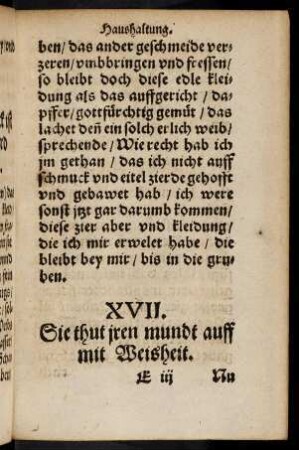 Haushaltung.
ben/ das ander geschmeide ver-
zeren/ vmbbringen vnd fressen/
so bleibt doch diese edle klei-
dung als das auffgericht / da-
pffer/ gottfürchtig gemüt / das
lachet deñ ein solch erlich weib/
sprechende / Wie recht hab ich
jm gethan / das ich nicht auff
schmuck vnd eitel zierde gehofft
vnd gebawet hab / ich were
sonst jtzt gar darumb kommen/
diese zier aber vnd kleidung/
die ich mir erwelet habe / die
bleibt bey mir / bis in die gru-
ben.
XVII.
Sie thut jren mundt auff
mit Weisheit.
E iij Nu